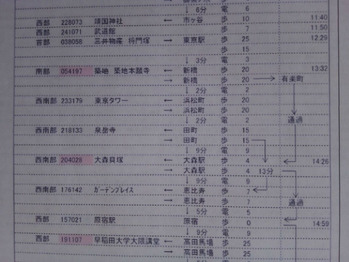 ↓ 6分 電 6
西部 228073 靖国神社 ← 市ヶ谷 歩 10 11:40
西部 241071 武道館 歩 7 11:50
首部 658058 三井物産 将門塚 ← 東京駅 歩 25 12:29
歩 15
↓ 3分 電 3
南部 004197 築地 築地本願寺 ← 新橋 歩 20 13:32
→ 新橋 歩 20 → 有楽町
↓ 2分 電 2
西南部 233179 東京タワー ← 浜松町 歩 20
→ 浜松町 歩 20 通過
↓ 2分 電 2
西南部 218133 泉岳寺 ← 田町 歩 15
→ 田町 歩 15
↓ 9分 電 9
西南部 204028 大森貝塚 ← 大森駅 歩 4 14:26
→ 大森駅 歩 4 13分
↓ 9分 電 9
西南部 176142 ガーデンプレイス ← 恵比寿 歩 7
→ 恵比寿 歩 7 通過
↓ 5分 電 5
西部 157021 原宿駅 原宿 歩 0 14:59
↓ 9分 電 9
西部 191107 早稲田大学大隈講堂 ← 高田馬場 歩 25
→ 高田馬場 歩 25